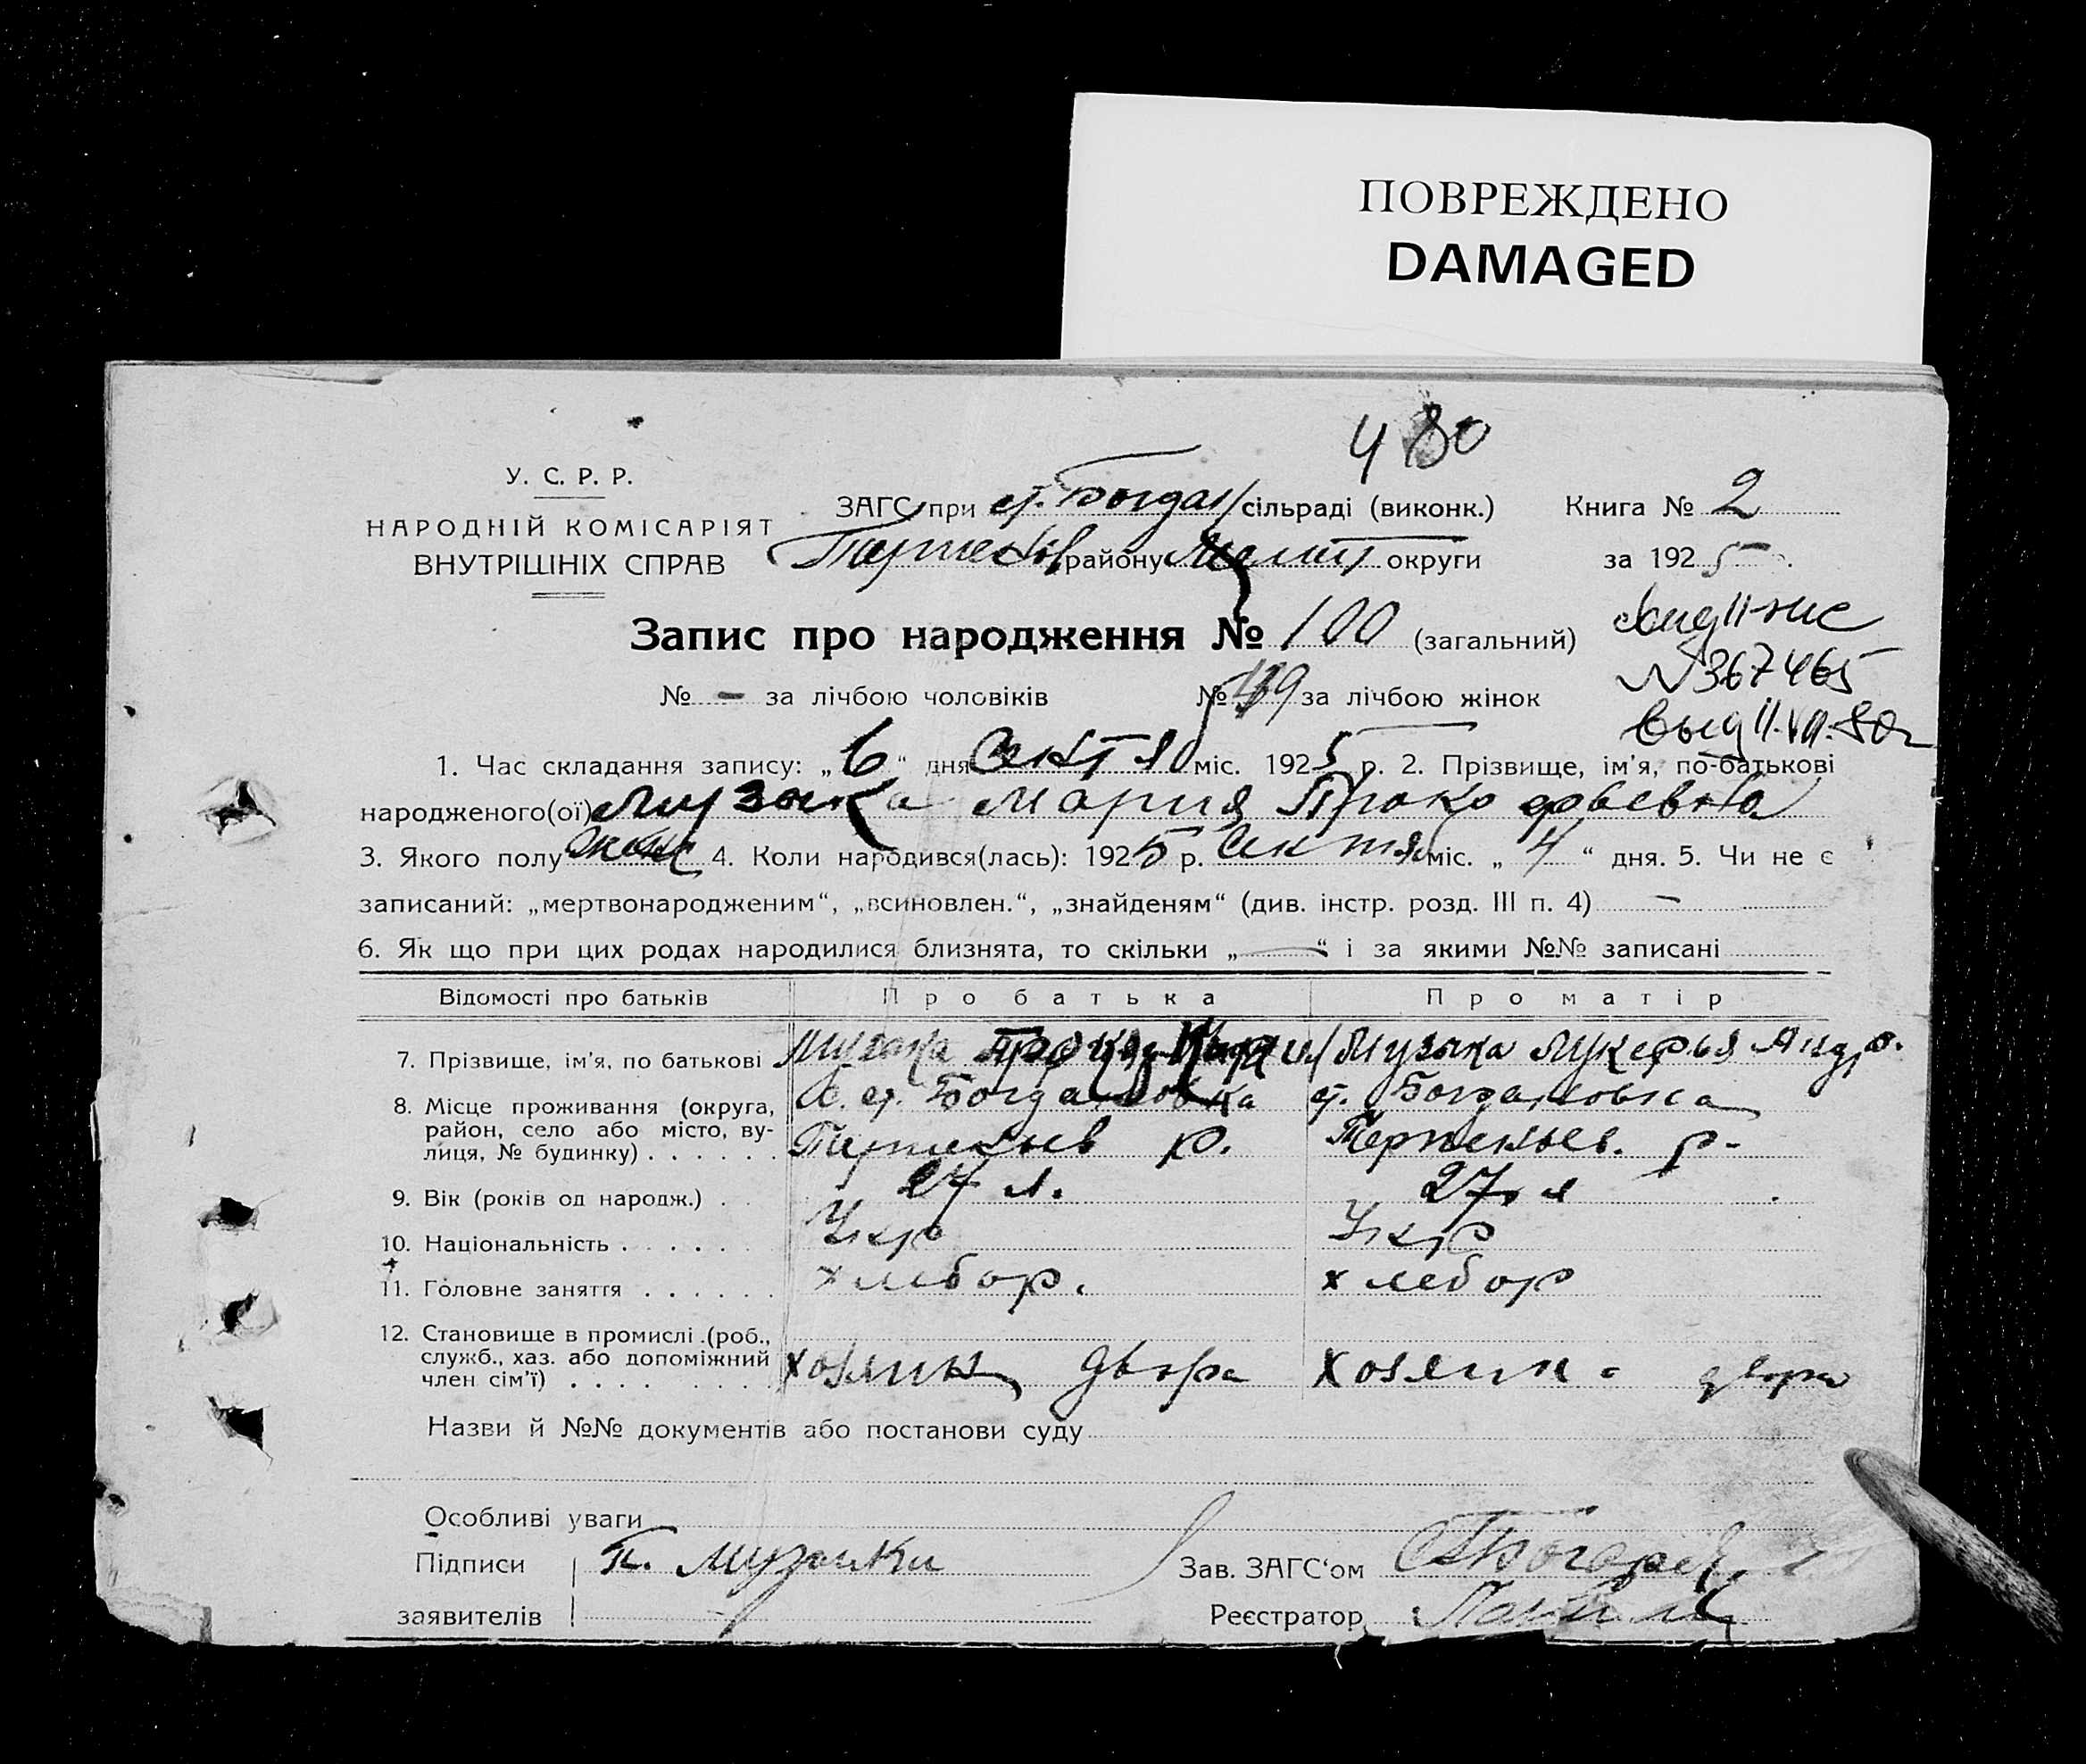 ПОВРЕЖДЕНО
DAMAGED
480
У. С. Р. Р.
НАРОДНІЙ КОМІСАРІЯТ
ВНУТРІШНІХ СПРАВ
ЗАГС при с. Богдан сільраді (виконк.) Книга № 2
району округи за 1925
Запис про народження № 100 (загальний)
№ - за лічбою чоловіків № за лічбою жінок
№ 367465
1. Час складання запису: „6“ дня міс. 1925 р. 2. Прізвище, ім'я, по-батькові
народженого(ої) Музыка Мария Прокофьевна
3. Якого полу жен 4. Коли народився(лась): 1925 р. міс. „4“ дня. 5. Чи не є
записаний: „мертвонародженим“, „всиновлен.“, „знайденям“ (див. інстр. розд. III п. 4) —
6. Як що при цих родах народилися близнята, то скільки „—“ і за якими №№ записані
Відомості про батьків Про батька Про матір
7. Прізвище, ім'я, по батькові Музыка Музыка Лукерья Андр.
8. Місце проживання (округа, с. Богдановка с. Богдановка
район, село або місто, ву-
лиця, № будинку) р. р.
9. Вік (років од народж.) 27 л. 27 л
10. Національність Укр Укр
11. Головне заняття хлебор. хлебор
12. Становище в промислі (роб.,
служб., хаз. або допоміжний
член сім'ї) хозяин двора двора
Назви й №№ документів або постанови суду
Особливі уваги
Підписи П. Музыка Зав. ЗАГС'ом
заявителів Реєстратор